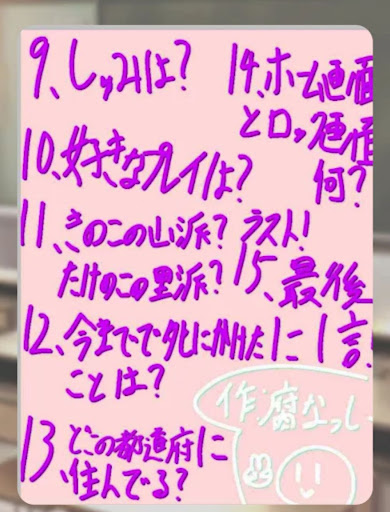 9、しゅみは?
10、好きなプレイは?
11、きのこの山派?
たけのこの里派?
12、今まででタヒにかけた
ことは?
13、どこの都道府に
住んでる?
14、ホーム画面
とロック画面
何?
ラスト!
15、最後
に1言!
作:腐なっし